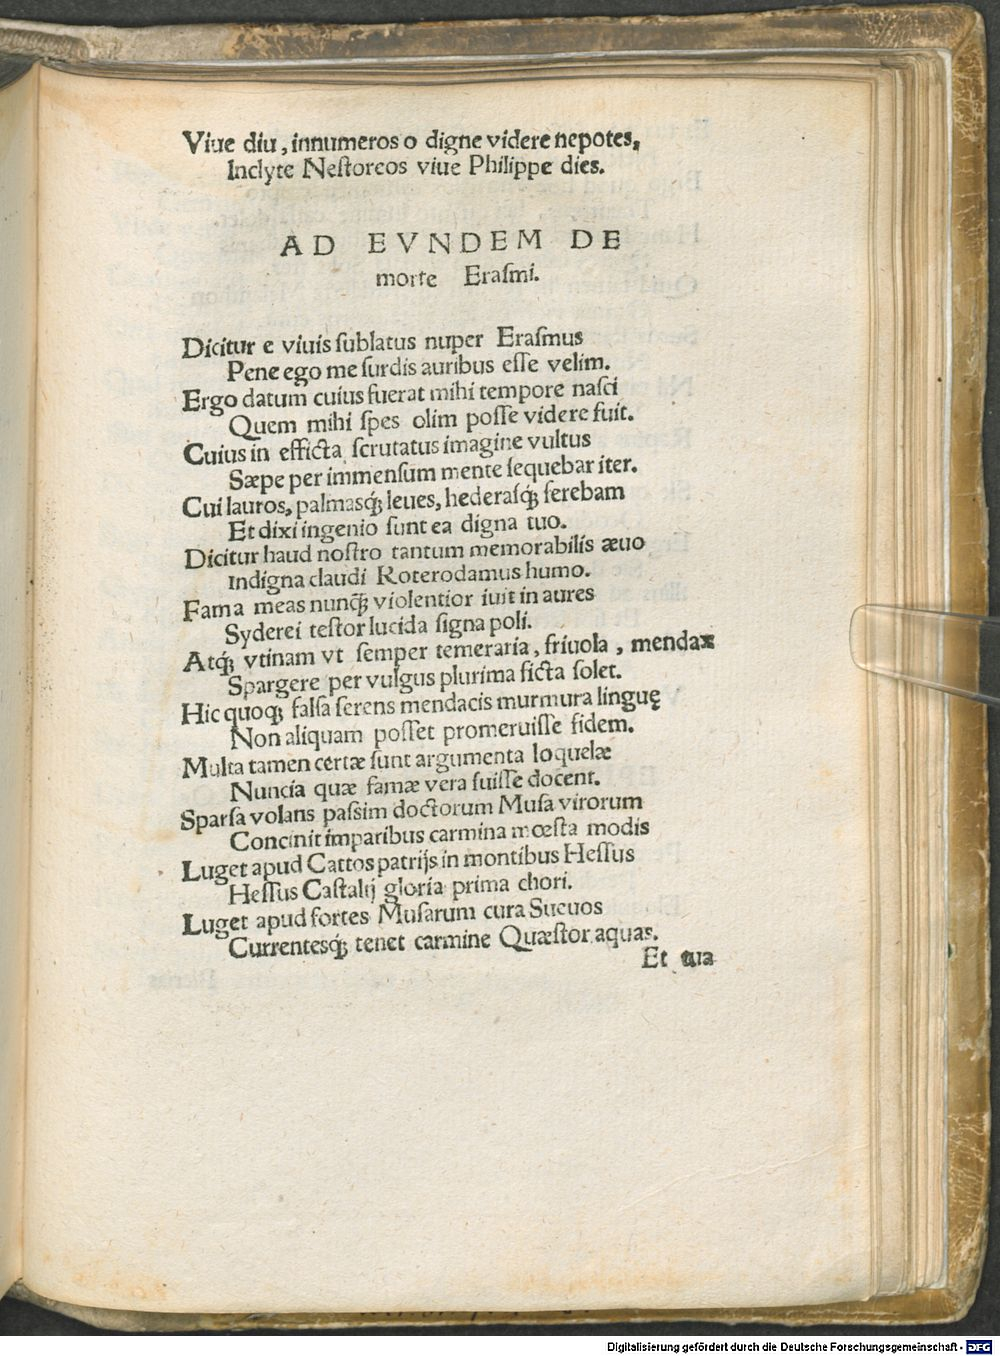 Viue diu, innumeros o digne videre nepotes,
Inclyte Neſtoreos viue Philippe dies.
AD EVNDEM DE
morte Eraſmi.
Dicitur e viuis ſublatus nuper Eraſmus
Pene ego me ſurdis auribus eſſe velim.
Ergo datum cuius fuerat mihi tempore naſci
Quem mihi ſpes olim poſſe videre fuit.
Cuius in efficta ſcrutatus imagine vultus
Sæpe per immenſum mente ſequebar iter.
Cui lauros, palmasꝗ́; leues, hederaſꝗ́; ſerebam
Et dixi ingenio ſunt ea digna tuo.
Dicitur haud noſtro tantum memorabilis æuo
Indigna claudi Roterodamus humo.
Fama meas nunꝗ́; violentior iuit in aures
Syderei teſtor lucida ſigna poli.
Atꝗ́; vtinam vt ſemper temeraria, friuola, mendax
Spargere per vulgus plurima ficta ſolet.
Hic quoꝗ; falſa ſerens mendacis murmura linguę
Non aliquam poſſet promeruiſſe fidem.
Multa tamen certæ ſunt argumenta loquelæ
Nuncia quæ famæ vera fuiſſe docent.
Sparſa volans paſsim doctorum Muſa virorum
Concinit imparibus carmina mœſta modis
Luget apud Cattos patrijs in montibus Heſſus
Heſſus Caſtalij gloria prima chori.
Luget apud fortes Muſarum cura Sueuos
Currentesꝗ́; tenet carmine Quæſtor aquas.
Et tua
Digitalisierung gefördert durch die Deutsche Forschungsgemeinschaft - DFG